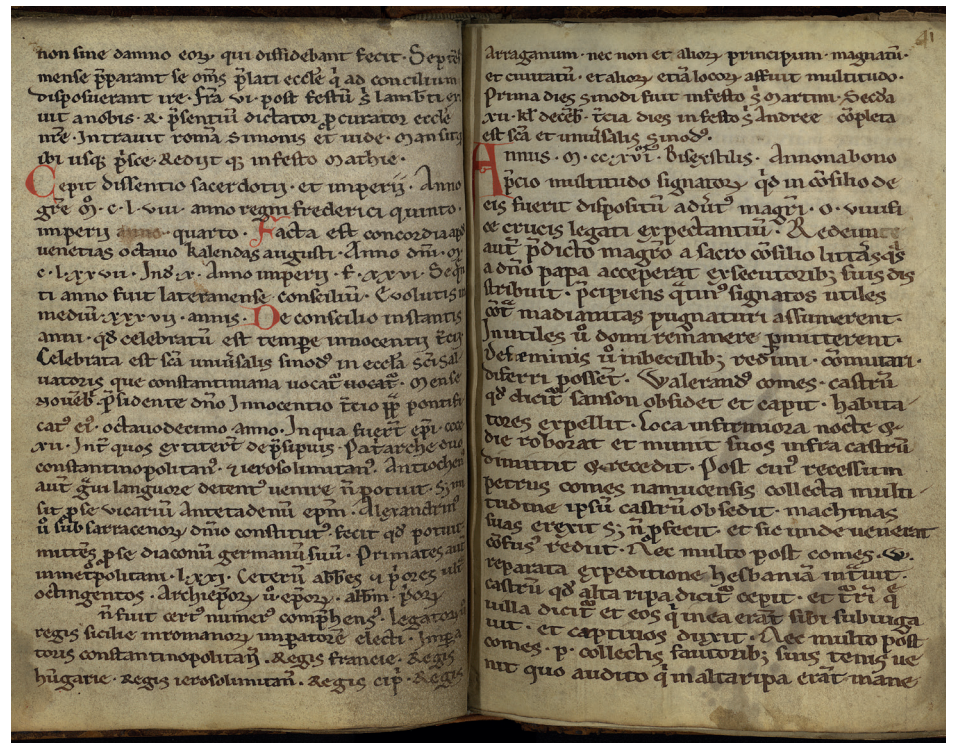 non sine damno eoꝝ. qui diffidebant fecit. Septēb
mense p̄parant se om̄s p̄lati eccl̄e q̇ ad concilium
disposuerant ire. fr̄a vi. post festū s̄ lamb̄ti ex
iuit a nobis. & p̄sentiū dictator p̱curator eccl̄e
nr̄e. Intrauit romā Simonis et iude. Mansitq;
ibi usq; p̄sce. Rediit q; in festo Mathie.
Cepit dissentio sacerdotij. et imperij. Anno
gr̄e M̊. c. l. viii. anno regni frederici quinto.
imperij anno. quarto. Facta est concordia apd
venetias octauo kalendas augusti. Anno dn̄i. M̊
c. lxxvii. Ind̄. x. Anno imperij. f. xxvi. Seqn̄
ti anno fuit lateranense consiliū. Euolutis in
mediū. xxxvii. annis. De consilio instantis
anni. qd̄ celebratū est temp̱e innocentij t̄cij
Celebrata est sc̄a uniu̓salis sinodꝰ in eccl̄a sc̄i sal
uatoris que constantiniana uocat᷑ uocat᷑. Mense
Noueb̄. p̄sidente dn̄o Innocentio t̄cio pp̄ pontifi
catꝰ eiꝰ. octauodecimo anno. In qua fuer̄t ep̄i. cccc
xii. Int̄ quos extiter̄t de p̄cipuis. Pat̓arche duo
constantinopolitanꝰ. ⁊ ierosolimitanꝰ. Antiochenꝰ
aut̄ g̓ui languore detentꝰ uenire n̄ potuit. S; mi
sit p̱ se uicariū Antetadenū ep̄m. Alexandrinꝰ
u̓ sub sarracenoꝝ dn̄io constitutꝰ. fecit qd̄ potuit
mittēs p̱ se diaconū germanū suū. Primates aut̄
⁊ metpolitani. lxxi. Ceterū abb̄es ⁊ p̓ores ult̄
octingentos. Archiep̄oꝝ u̓. ep̄oꝝ. abb̄m. p̓oꝝ
n̄ fuit certꝰ numerꝰ comp̄hensꝰ. legatoꝝ u̓
regis sicilie in romanoꝝ imp̱atorē electi. Imp̱a
toris constantinopolitan̄. Regis francie. Regis
hūgarie. Regis ierosolimitan̄. Regis cip̓. Regis
41
Arraganum. nec non et alioꝝ principum. magnatū.
et ciuitatū. et alioꝝ etiā locoꝝ affuit multitudo.
Prima dies sinodi fuit in festo s̄ Martini. Sec̄da
xii. kl̄ deceb̄. t̄cia dies in festo s̄ Andree cōpleta
est sc̄a et uniu̓salis sinodꝰ.
Annus. M. cc. xvi. Bisextilis. Annona bono
p̓cio multitudo signatoꝝ qd̄ in cōsilio de
eis fuerit dispositū adut̄ꝰ magr̄i. O. uiuifi
ce crucis legati expectantiū. Redeunte
aut̄ p̄dicto magr̄o a sacro cōsilio litt̄as q̓s
a dn̄o papa acceperat exsecutorib; suis dis
tribuit. p̄cipiens q̓tinꝰ signatos utiles
cōt̓ madianitas pugnaturi assumerent.
Inutiles u̓ domi remanere p̱mitterent.
De fæminis u̓ inbecillib; redimi. cōmutari.
differri possēt. Walerandꝰ comes. castrū
qd̄ dicit᷑ sanson obsidet et capit. habita
tores expellit. Loca infirmiora nocte &
die roborat et munit suos infra castrū
dimittit & recedit. Post cuiꝰ recessum
petrus comes namucensis collecta multi
tudine ipsū castrū obsedit. machinas
suas erexit s; n̄ p̱fecit. et sic unde uenerat
cōfusꝰ rediit. Nec multo post comes. W.
reparata expeditione hesbaniā int̓uit.
castrū qd̄ alta ripa dicit᷑ cepit. et t̄rā q̄
uilla dicit᷑ et eos q̇ in ea erāt sibi subiuga
uit. et captiuos duxit. Nec multo post
comes. p. collectis fautorib; suis tenis ue
nit quo audito q̇ in alta ripa erāt mane